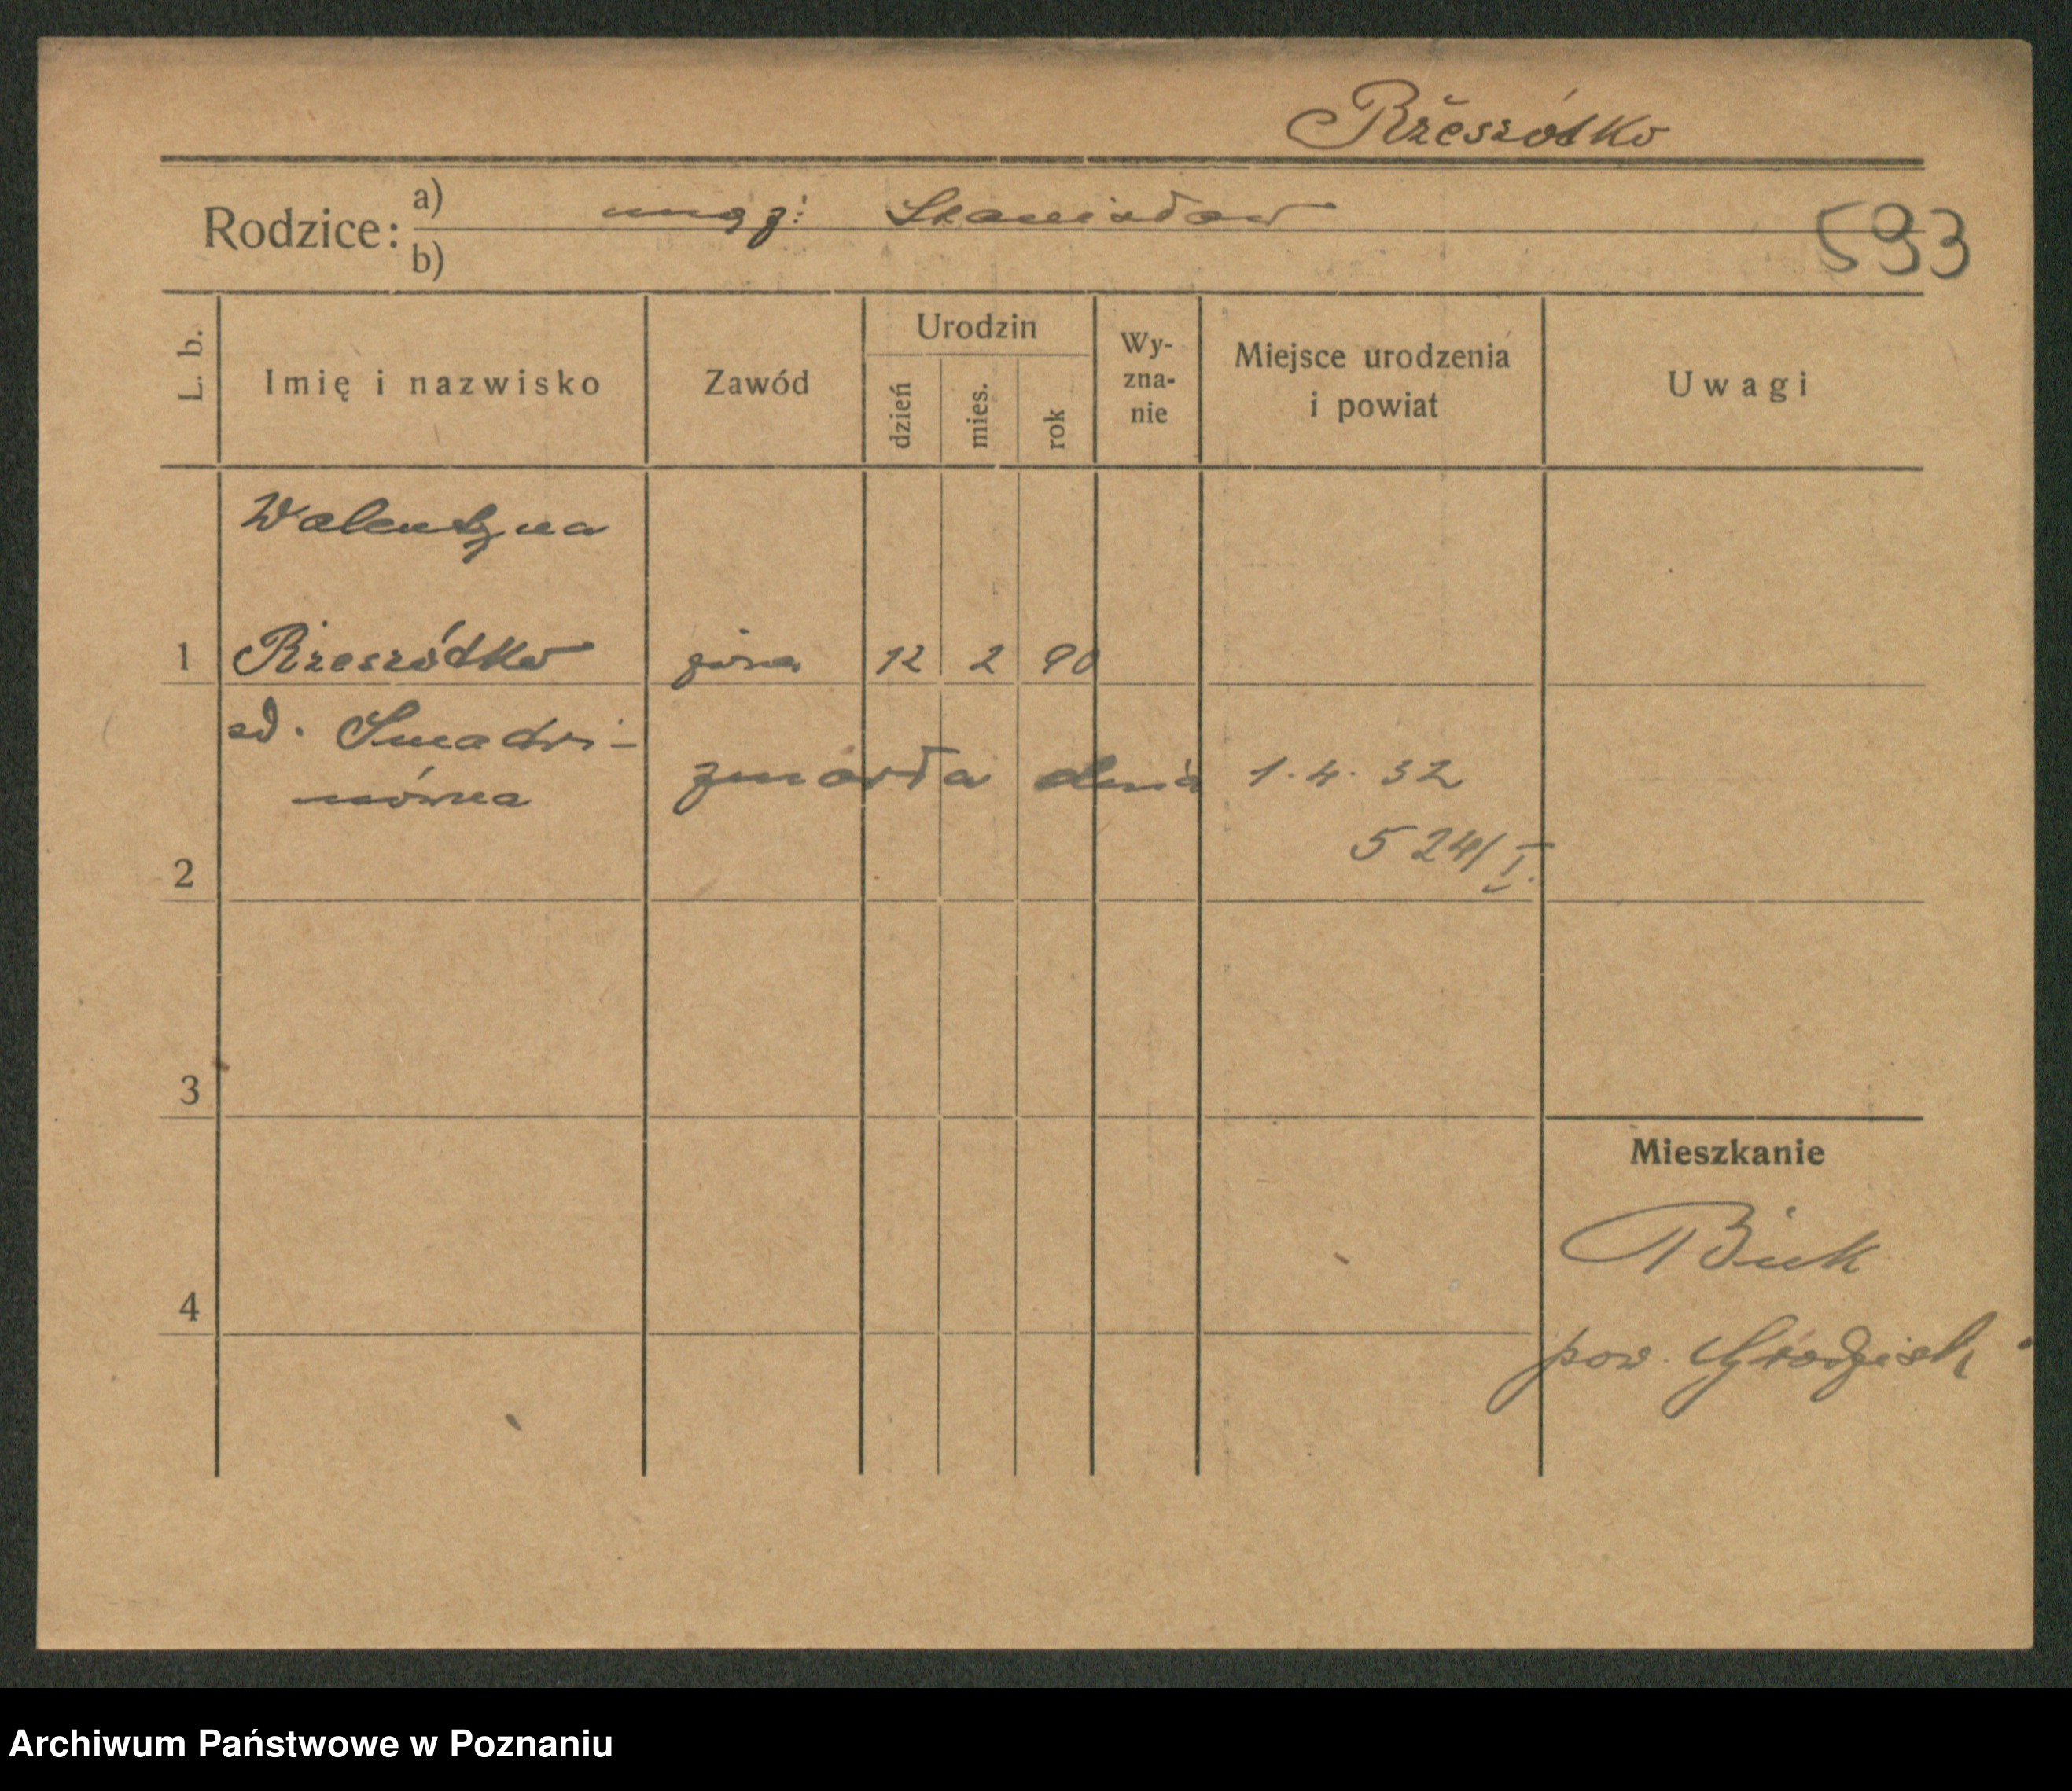 Rzeszótko
Rodzice: a) mąż: Stanisław
b)
593
L. b.
Imię i nazwisko
Zawód
Urodzin
dzień
mies.
rok
Wy-
zna-
nie
Miejsce urodzenia
i powiat
Uwagi
Walentyna
1 Rzeszótko żona 12 2 90
zd.
mówna
zmarła dnia 1.4.32
524/I.
2
3
4
Mieszkanie
Buk
pow. Grodzisk
Archiwum Państwowe w Poznaniu